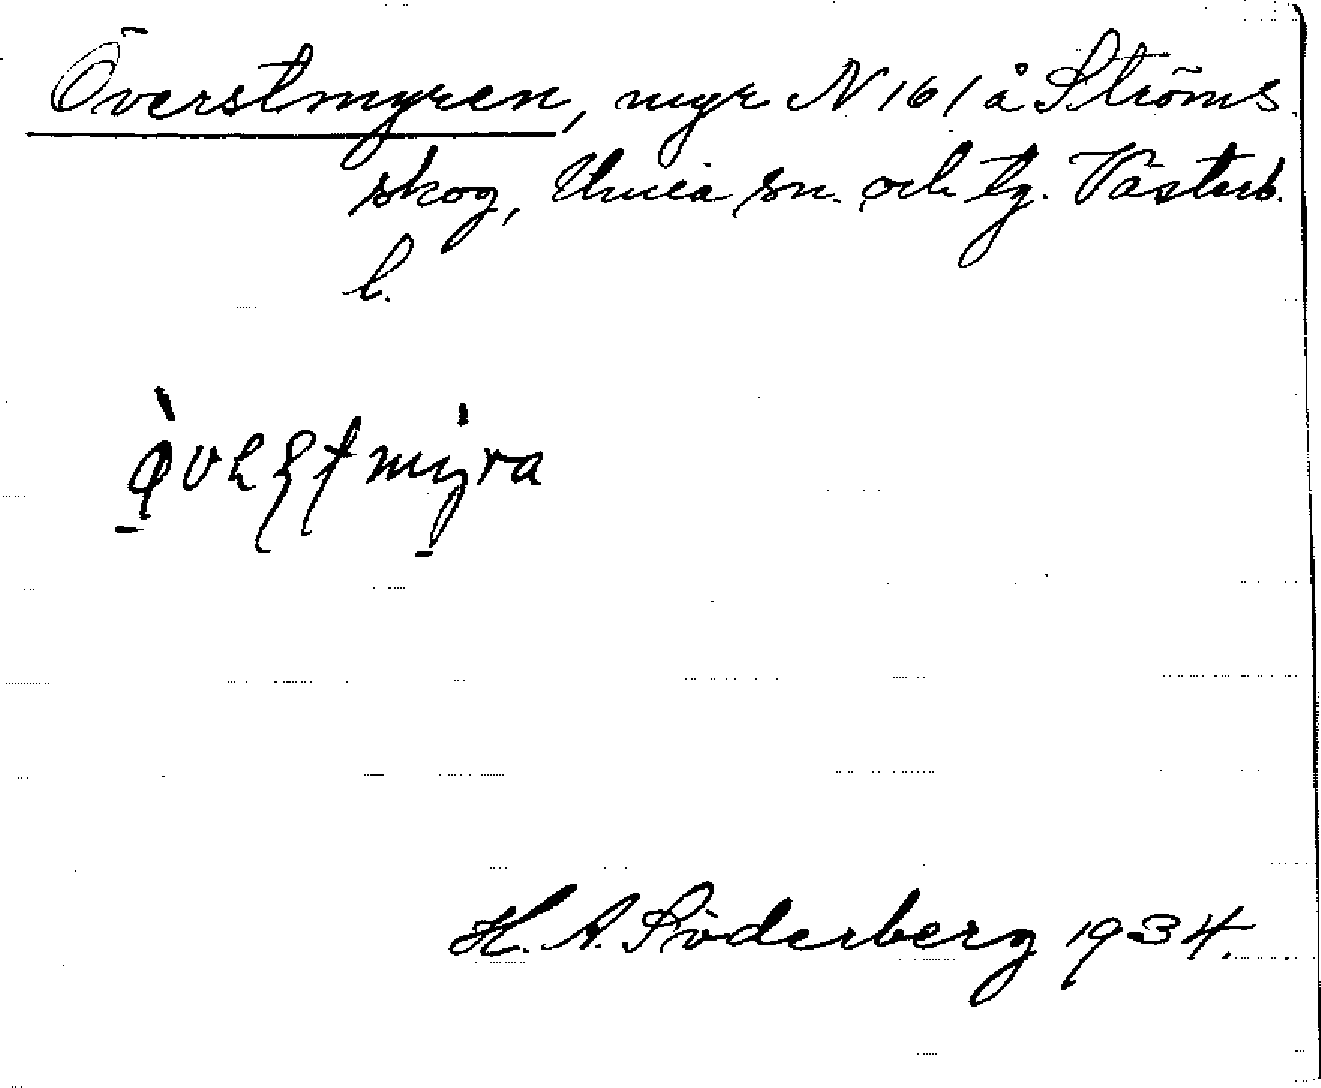 Överstmyren, myr N 161 å Ströms
skog, Umeå sn. och tg. Västerb.
l.
H. A. Söderberg 1934.